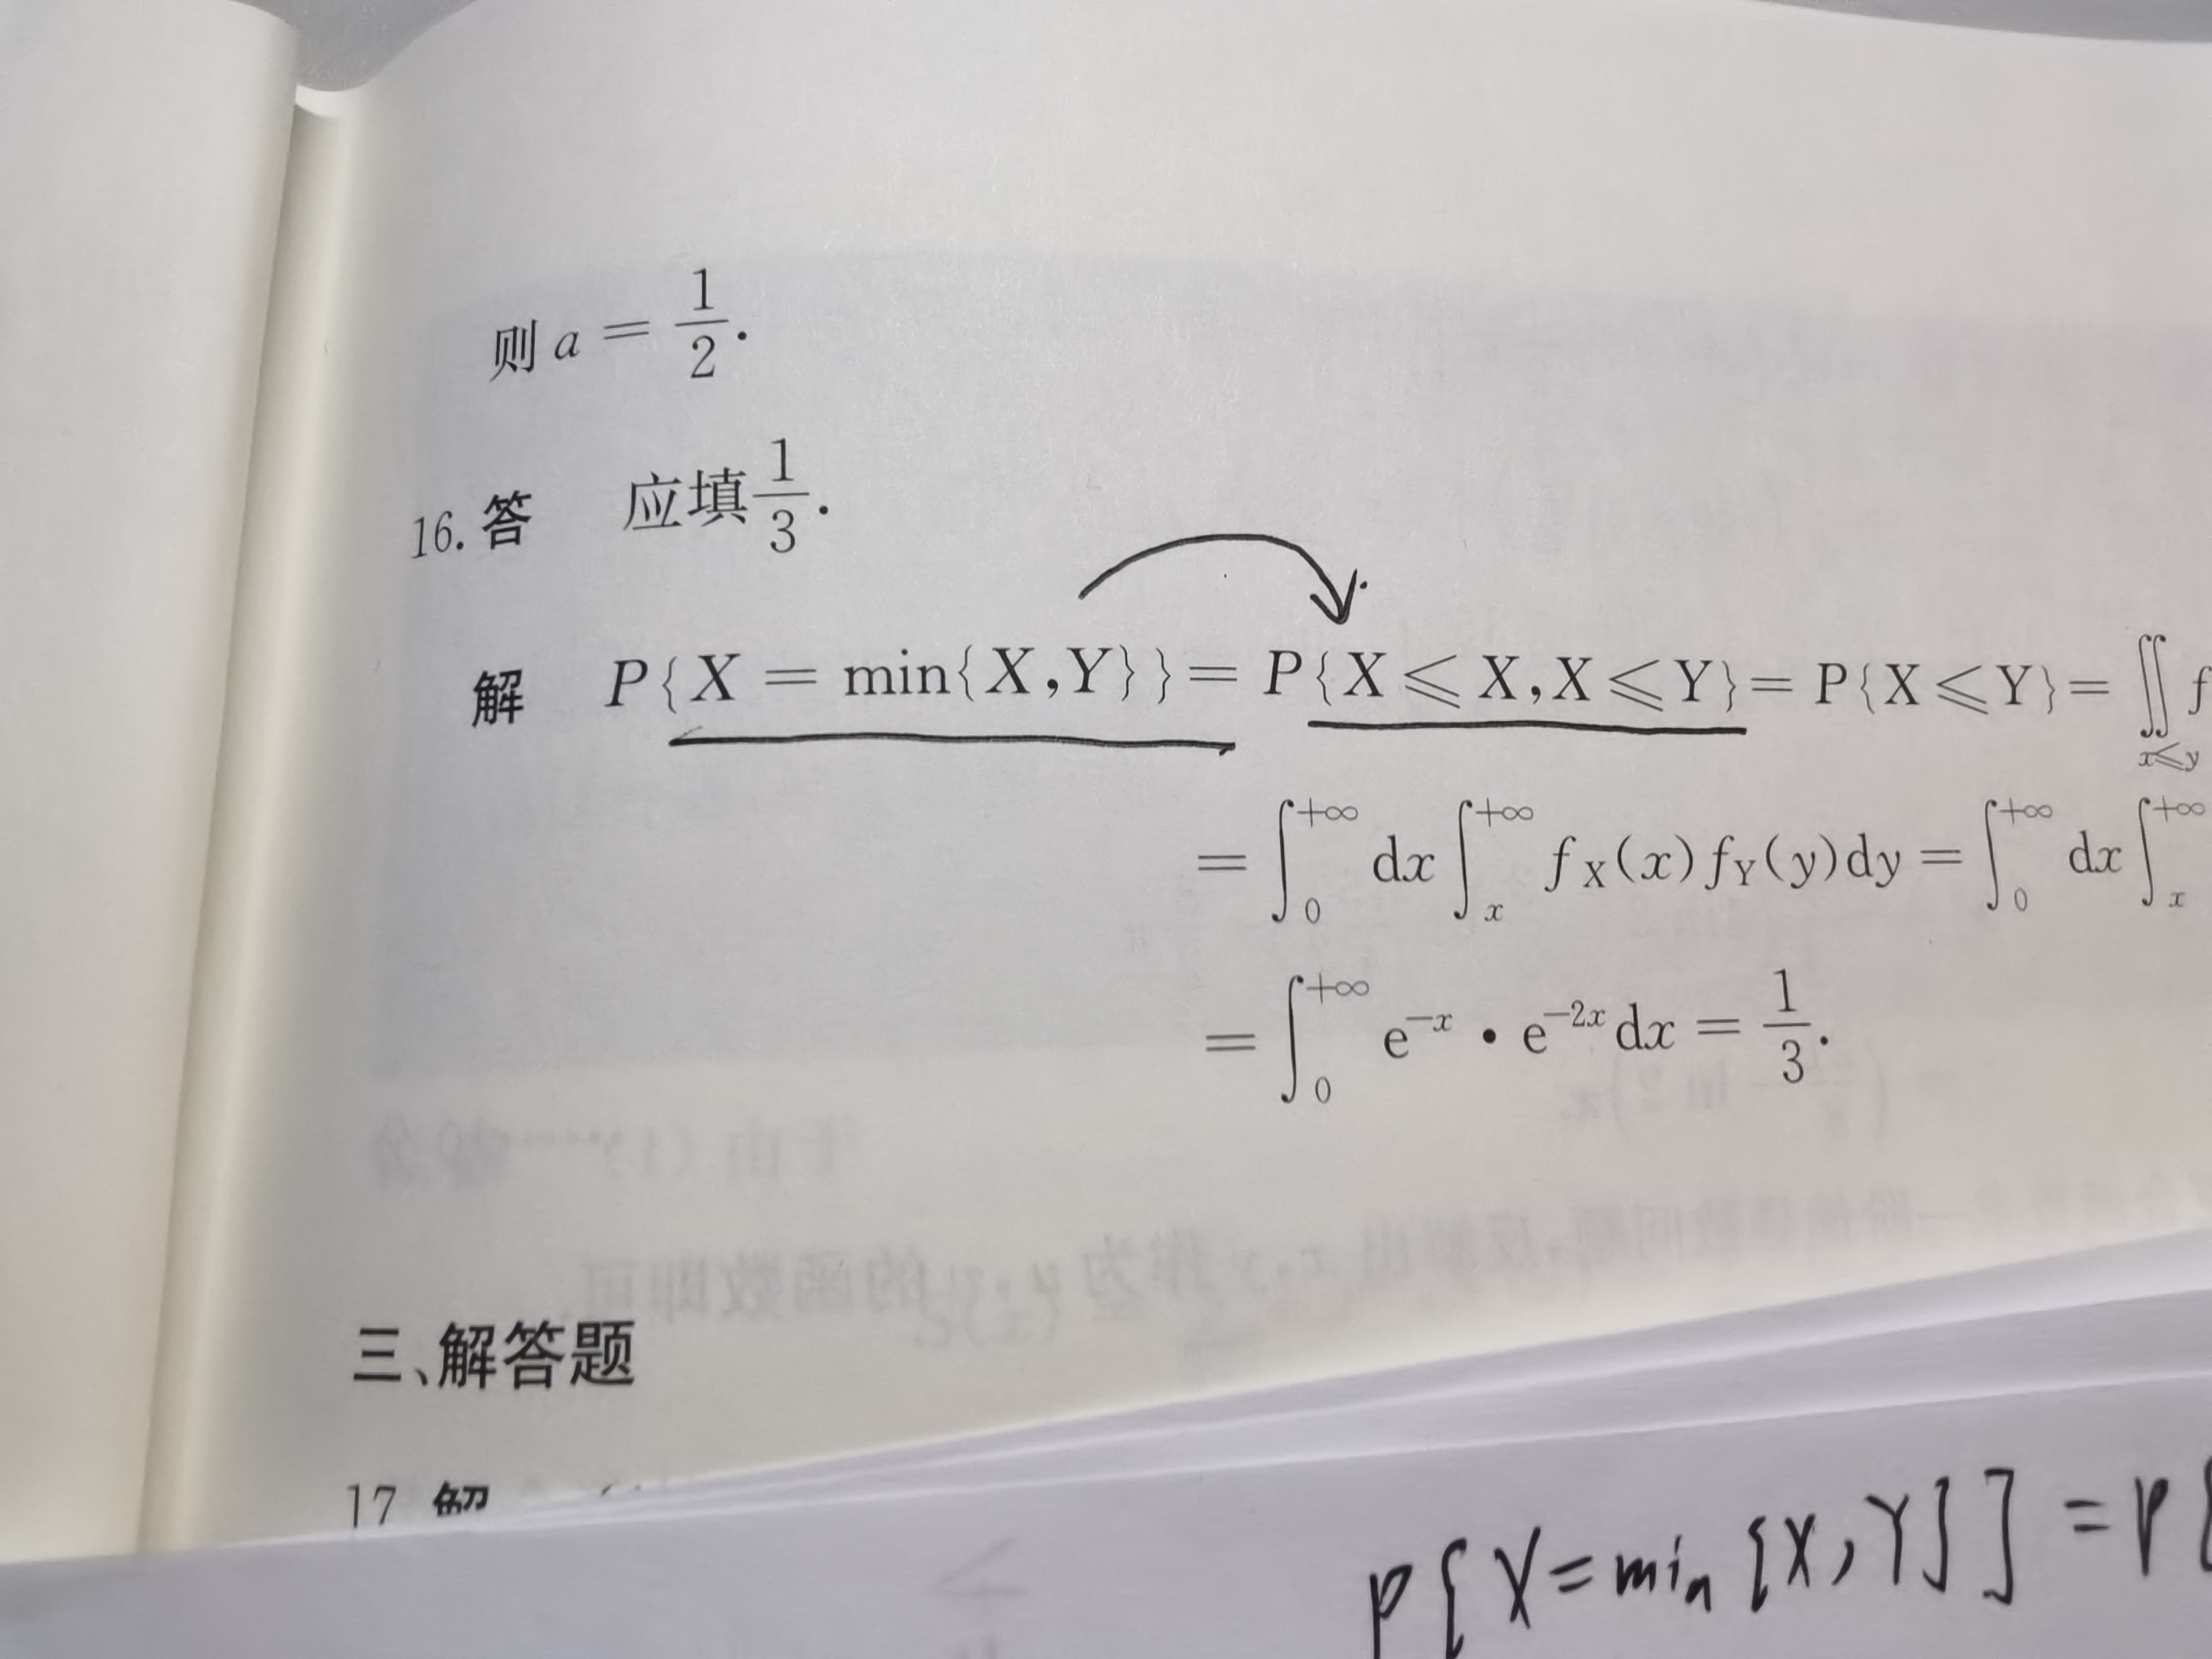 则 a = 1/2.
16. 答 应填 1/3.
解 P{X = min{X,Y}} = P{X ⩽ X,X ⩽ Y} = P{X ⩽ Y} = ∬_{x⩽y} f
= ∫_0^{+∞} dx ∫_x^{+∞} f_X(x) f_Y(y)dy = ∫_0^{+∞} dx ∫_x^{+∞}
= ∫_0^{+∞} e^{-x} • e^{-2x} dx = 1/3.
三、解答题
17 解
P{X=min{X,Y}} = P{